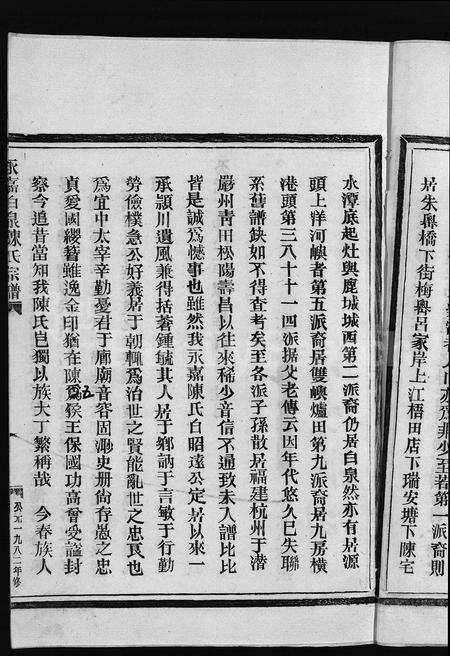 居朱㙪橋下街梅㙪呂家岸上江梧田店下瑞安塘下陳宅
亦爲非少至若第一派裔則
水潭底起灶與鹿城城西第二派裔仍居白泉然亦有居源
頭上垟河嶼者第五派裔居雙嶼爐田第九派裔居九房橫
港頭第三八十十一四派据父老傳云因年代悠久巳失聯
系舊譜缺如不得查考矣至各派子孫散居福建杭州于潛
嚴州青田松陽壽昌以往來稀少音信不通致未入譜比比
皆是誠爲憾事也雖然我永嘉陳氏自昭遠公定居以來一
承潁川遺風兼得括蒼鍾毓其人居于鄉訥于言敏于行勤
勞儉樸急公好義居于朝輒爲治世之賢能亂世之忠良也
爲宜中太宰辛勤憂君于廊廟音容固渺史册尙存愚之忠
貞愛國纓簪雖逸金印猶在陳爲五侯王保國功高曾受謚封
察今追昔當知我陳氏自獨以族大丁繁稱哉 今春族人
永嘉白泉陳氏宗譜
公元一九八二年修